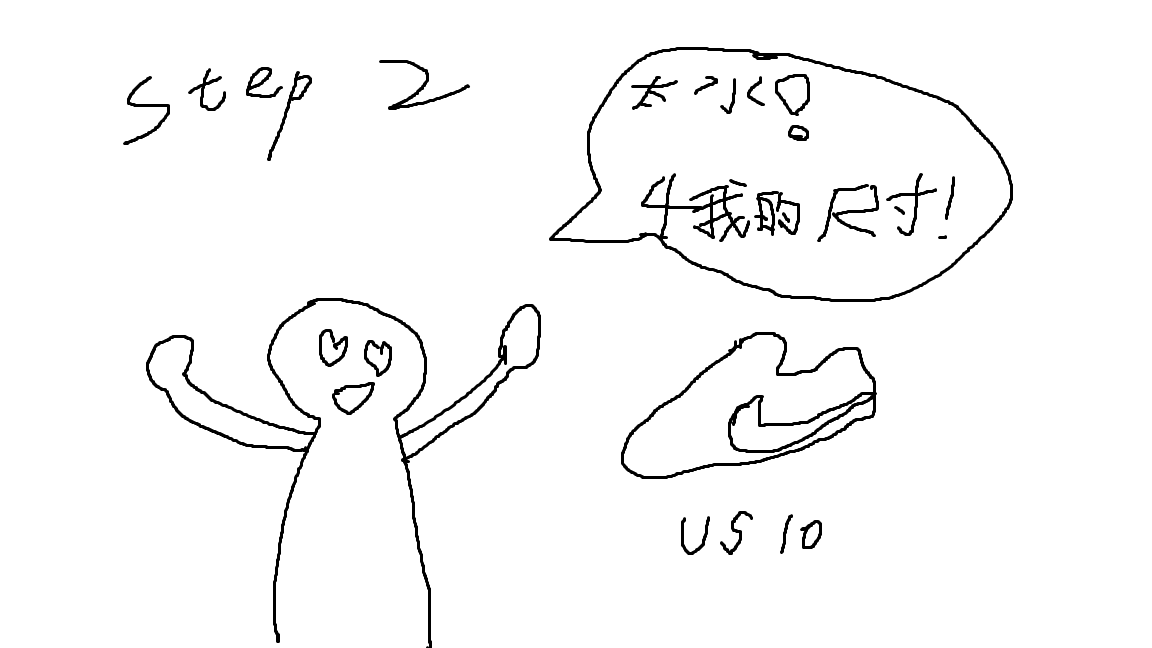 step 2
太水!
4我的尺寸!
US 10